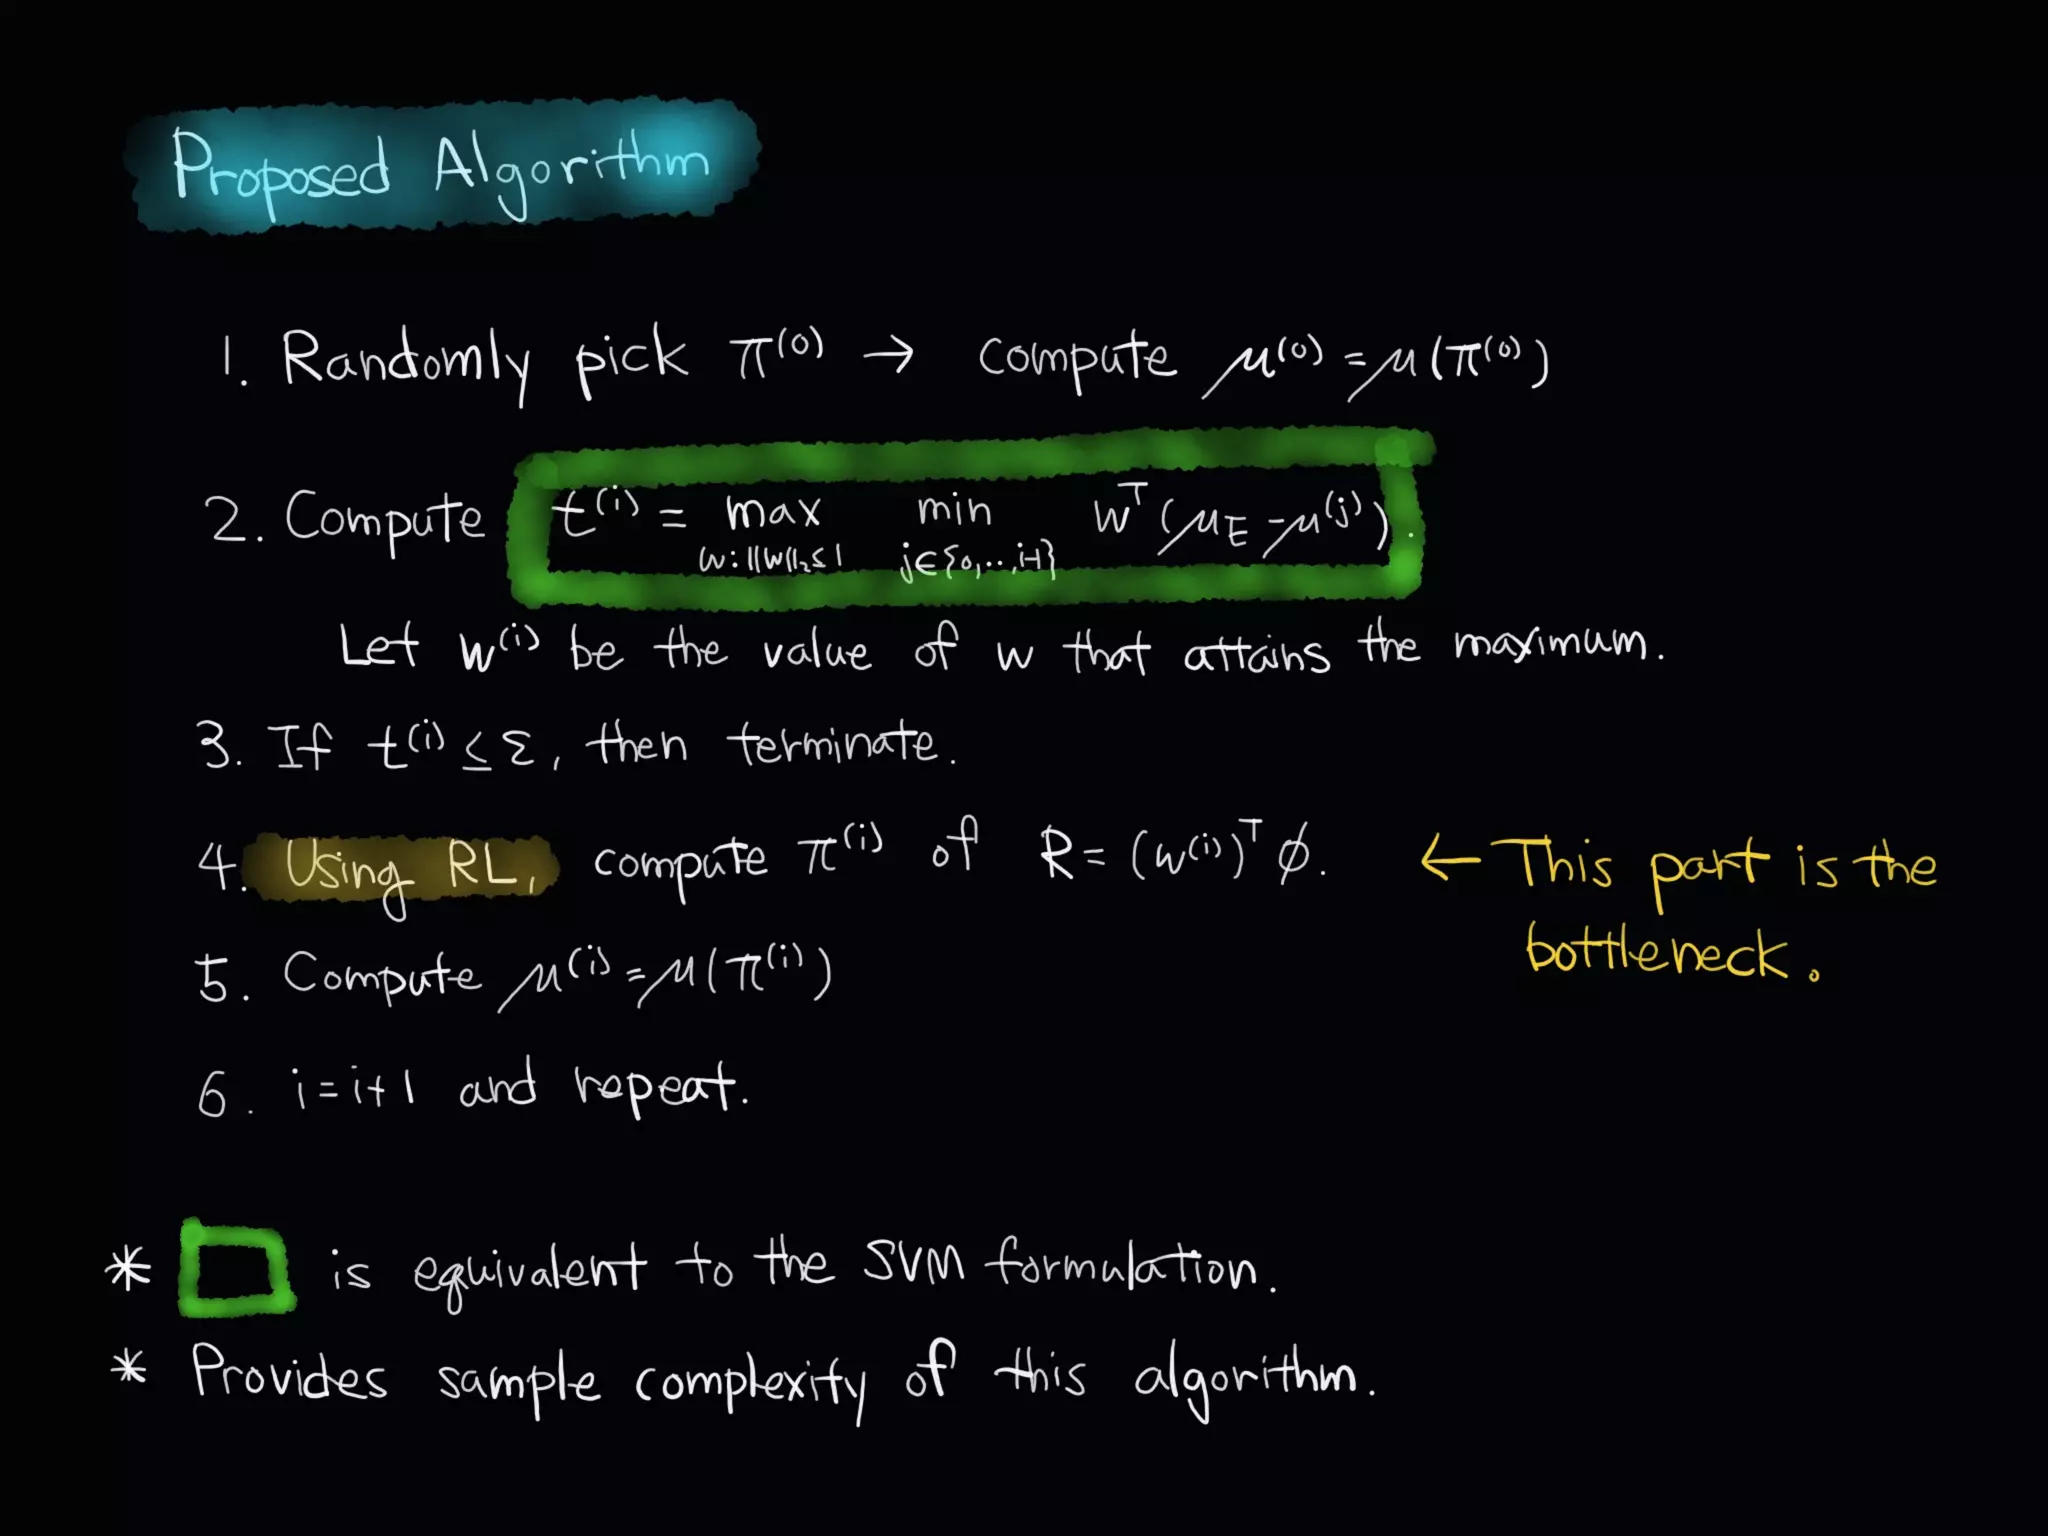 Proposed Algorithm
1. Randomly pick π⁽⁰⁾ → compute μ⁽⁰⁾ = μ(π⁽⁰⁾)
2. Compute t⁽ⁱ⁾ = max min wᵀ(μ_E - μ⁽ʲ⁾).
w:||w||₂≤1 j∈{0,..,i-1}
Let w⁽ⁱ⁾ be the value of w that attains the maximum.
3. If t⁽ⁱ⁾ ≤ ε, then terminate.
4. Using RL, compute π⁽ⁱ⁾ of R = (w⁽ⁱ⁾)ᵀϕ. ← This part is the
bottleneck.
5. Compute μ⁽ⁱ⁾ = μ(π⁽ⁱ⁾)
6. i = i+1 and repeat.
* □ is equivalent to the SVM formulation.
* Provides sample complexity of this algorithm.